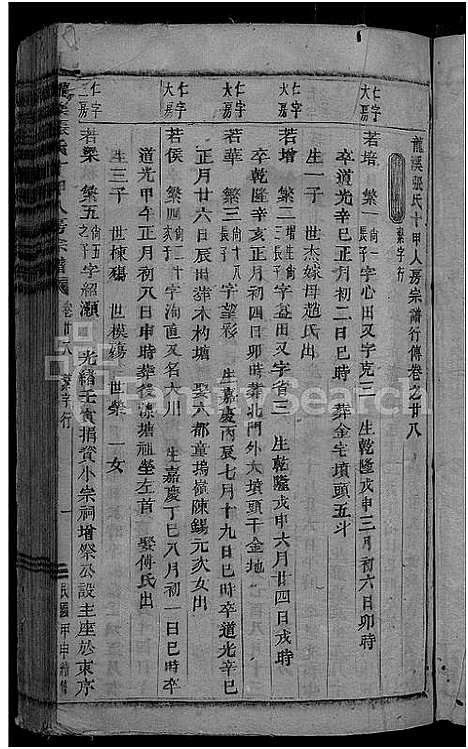 龍溪張氏十甲人房宗譜行傳卷之廿八
繁字行
仁字大房
若培 繁一 尚一長子 字心田又字克三 生乾隆戊申三月初六日卯時
卒道光辛巳正月初二日巳時 葬金宅墳頭五斗
生一子 世杰嫁母趙氏出
仁字大房
若增 繁二 字益田又字省 生乾隆戊申六月廿四日戌時
卒乾隆辛亥正月初四日卯時葬北門外大墳頭干金地
仁字大房
若華 繁三 尚十八長子 字望彩 生嘉慶丙辰七月十九日巳時卒道光辛巳
正月廿六日辰時葬木杓塘 娶六都童塢嶺陳錫元次女出
仁字大房
若侯 繁四 尚二十長子 字洵直又名大川 生嘉慶丁巳八月初一日巳時卒
道光甲午正月初八日申時葬後漈塘祖塋左首 娶傅氏出
生三子 世棟殤 世模殤 世榮 一女
仁字二房
若梁 繁五 尚五之子 字紹灝 光緒壬寅捐資小宗祠增祭公設主座於東序
龍溪張氏十甲人房宗譜 卷廿八 繁字行 一 民國甲申
FamilySearch